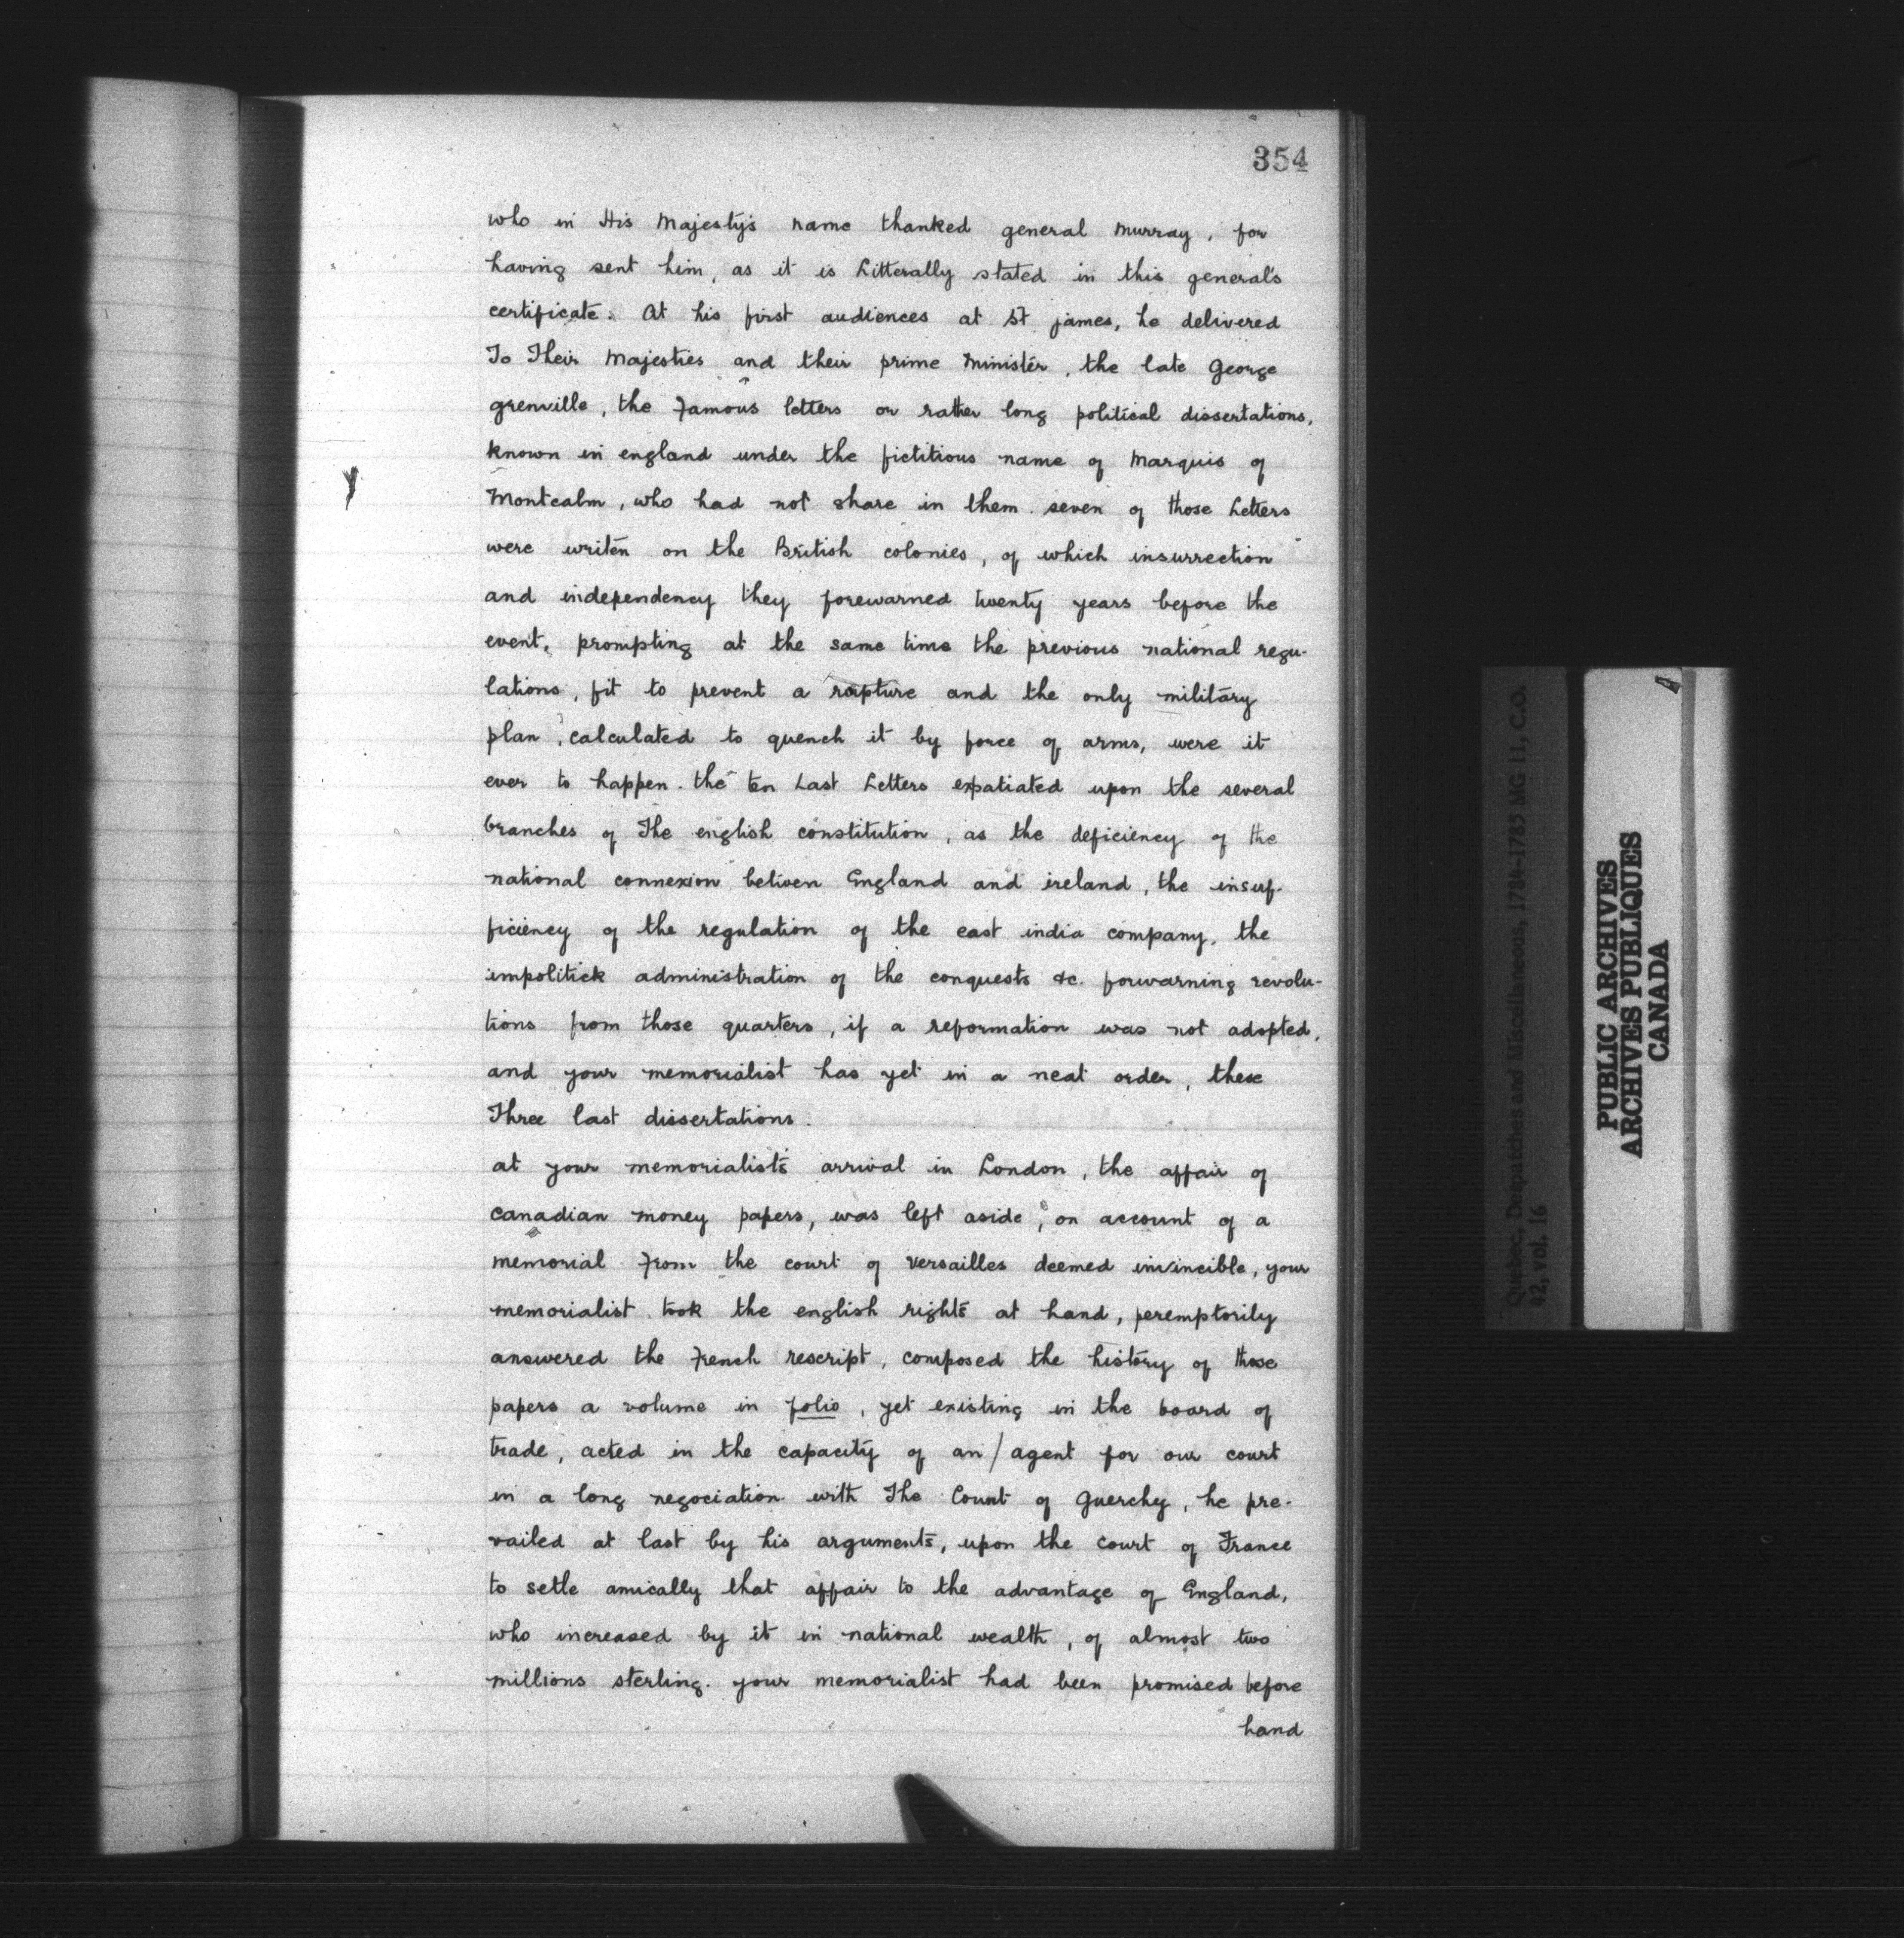 354
who in His Majesty's name thanked general Murray, for
having sent him, as it is Litterally stated in this general's
certificate. At his first audiences at St james, he delivered
To Their Majesties and their prime Minister, the late George
grenville, the famous letters or rather long political dissertations,
known in england under the fictitious name of Marquis of
Montcalm, who had not share in them. seven of those Letters
were writen on the British colonies, of which insurrection
and independency they forewarned twenty years before the
event, prompting at the same time the previous national regu-
lations, fit to prevent a rupture and the only military
plan, calculated to quench it by force of arms, were it
ever to happen. the ten Last Letters expatiated upon the several
branches of The english constitution, as the deficiency of the
national connexion betwen England and ireland, the insuf-
ficiency of the regulation of the east india company, the
impolitick administration of the conquests &c. forwarning revolu-
tions from those quarters, if a reformation was not adopted,
and your memorialist has yet in a neat order, these
Three last dissertations.
at your memorialist's arrival in London, the affair of
canadian money papers, was left aside, on account of a
memorial from the court of versailles deemed invincible, your
memorialist took the english rights at hand, peremptorily
answered the french rescript, composed the history of those
papers a volume in folio, yet existing in the board of
trade, acted in the capacity of an/agent for our court
in a long negociation with The Count of guerchy, he pre-
vailed at last by his arguments, upon the court of France
to setle amically that affair to the advantage of England,
who increased by it in national wealth, of almost two
millions sterling. your memorialist had been promised before
hand
Quebec, Despatches and Miscellaneous, 1784-1785 MG 11, C.O.
42, vol. 16
PUBLIC ARCHIVES
ARCHIVES PUBLIQUES
CANADA